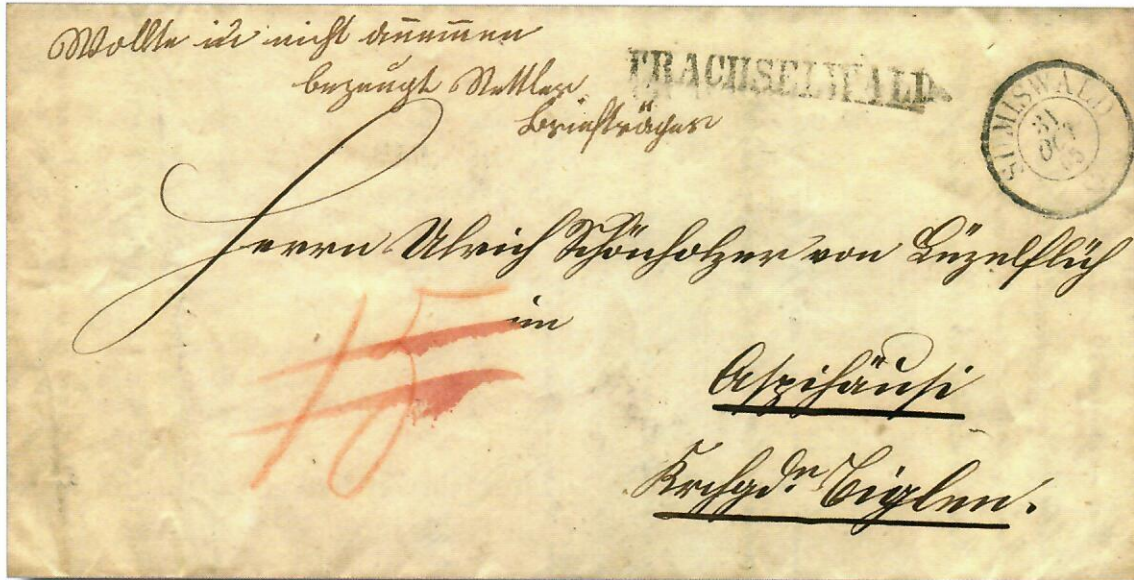 Wollte in nicht anemmen
bezeugt Mettler
Briefträger
TRACHSELWALD
SUMISWALD
31
OCT
65
Herrn Ulrich Schönholzer von Lüzelflüh
im
Aspihäusi
Krchgdn Biglen.
15